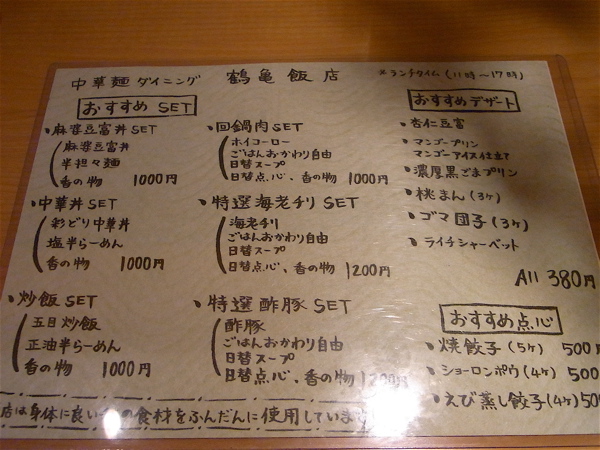 中華麺ダイニング 鶴亀飯店 ※ランチタイム(11時〜17時)
おすすめSET
・麻婆豆富丼SET
麻婆豆富丼
半担々麺
香の物 1000円
・中華丼SET
彩どり中華丼
塩半らーめん
香の物 1000円
・炒飯SET
五目炒飯
正油半らーめん
香の物 1000円
・回鍋肉SET
ホイコーロー
ごはんおかわり自由
日替スープ
日替点心、香の物 1000円
・特選海老チリSET
海老チリ
ごはんおかわり自由
日替スープ
日替点心、香の物 1200円
・特選酢豚SET
酢豚
ごはんおかわり自由
日替スープ
日替点心、香の物 1200円
おすすめデザート
・杏仁豆富
・マンゴープリン
マンゴーアイス仕立て
・濃厚黒ごまプリン
・桃まん(3ヶ)
・ゴマ団子(3ヶ)
・ライチシャーベット
All 380円
おすすめ点心
・焼餃子(5ヶ) 500円
・ショーロンポウ(4ヶ) 500
・えび蒸し餃子(4ヶ) 50
店は身体に良い の食材をふんだんに使用しています